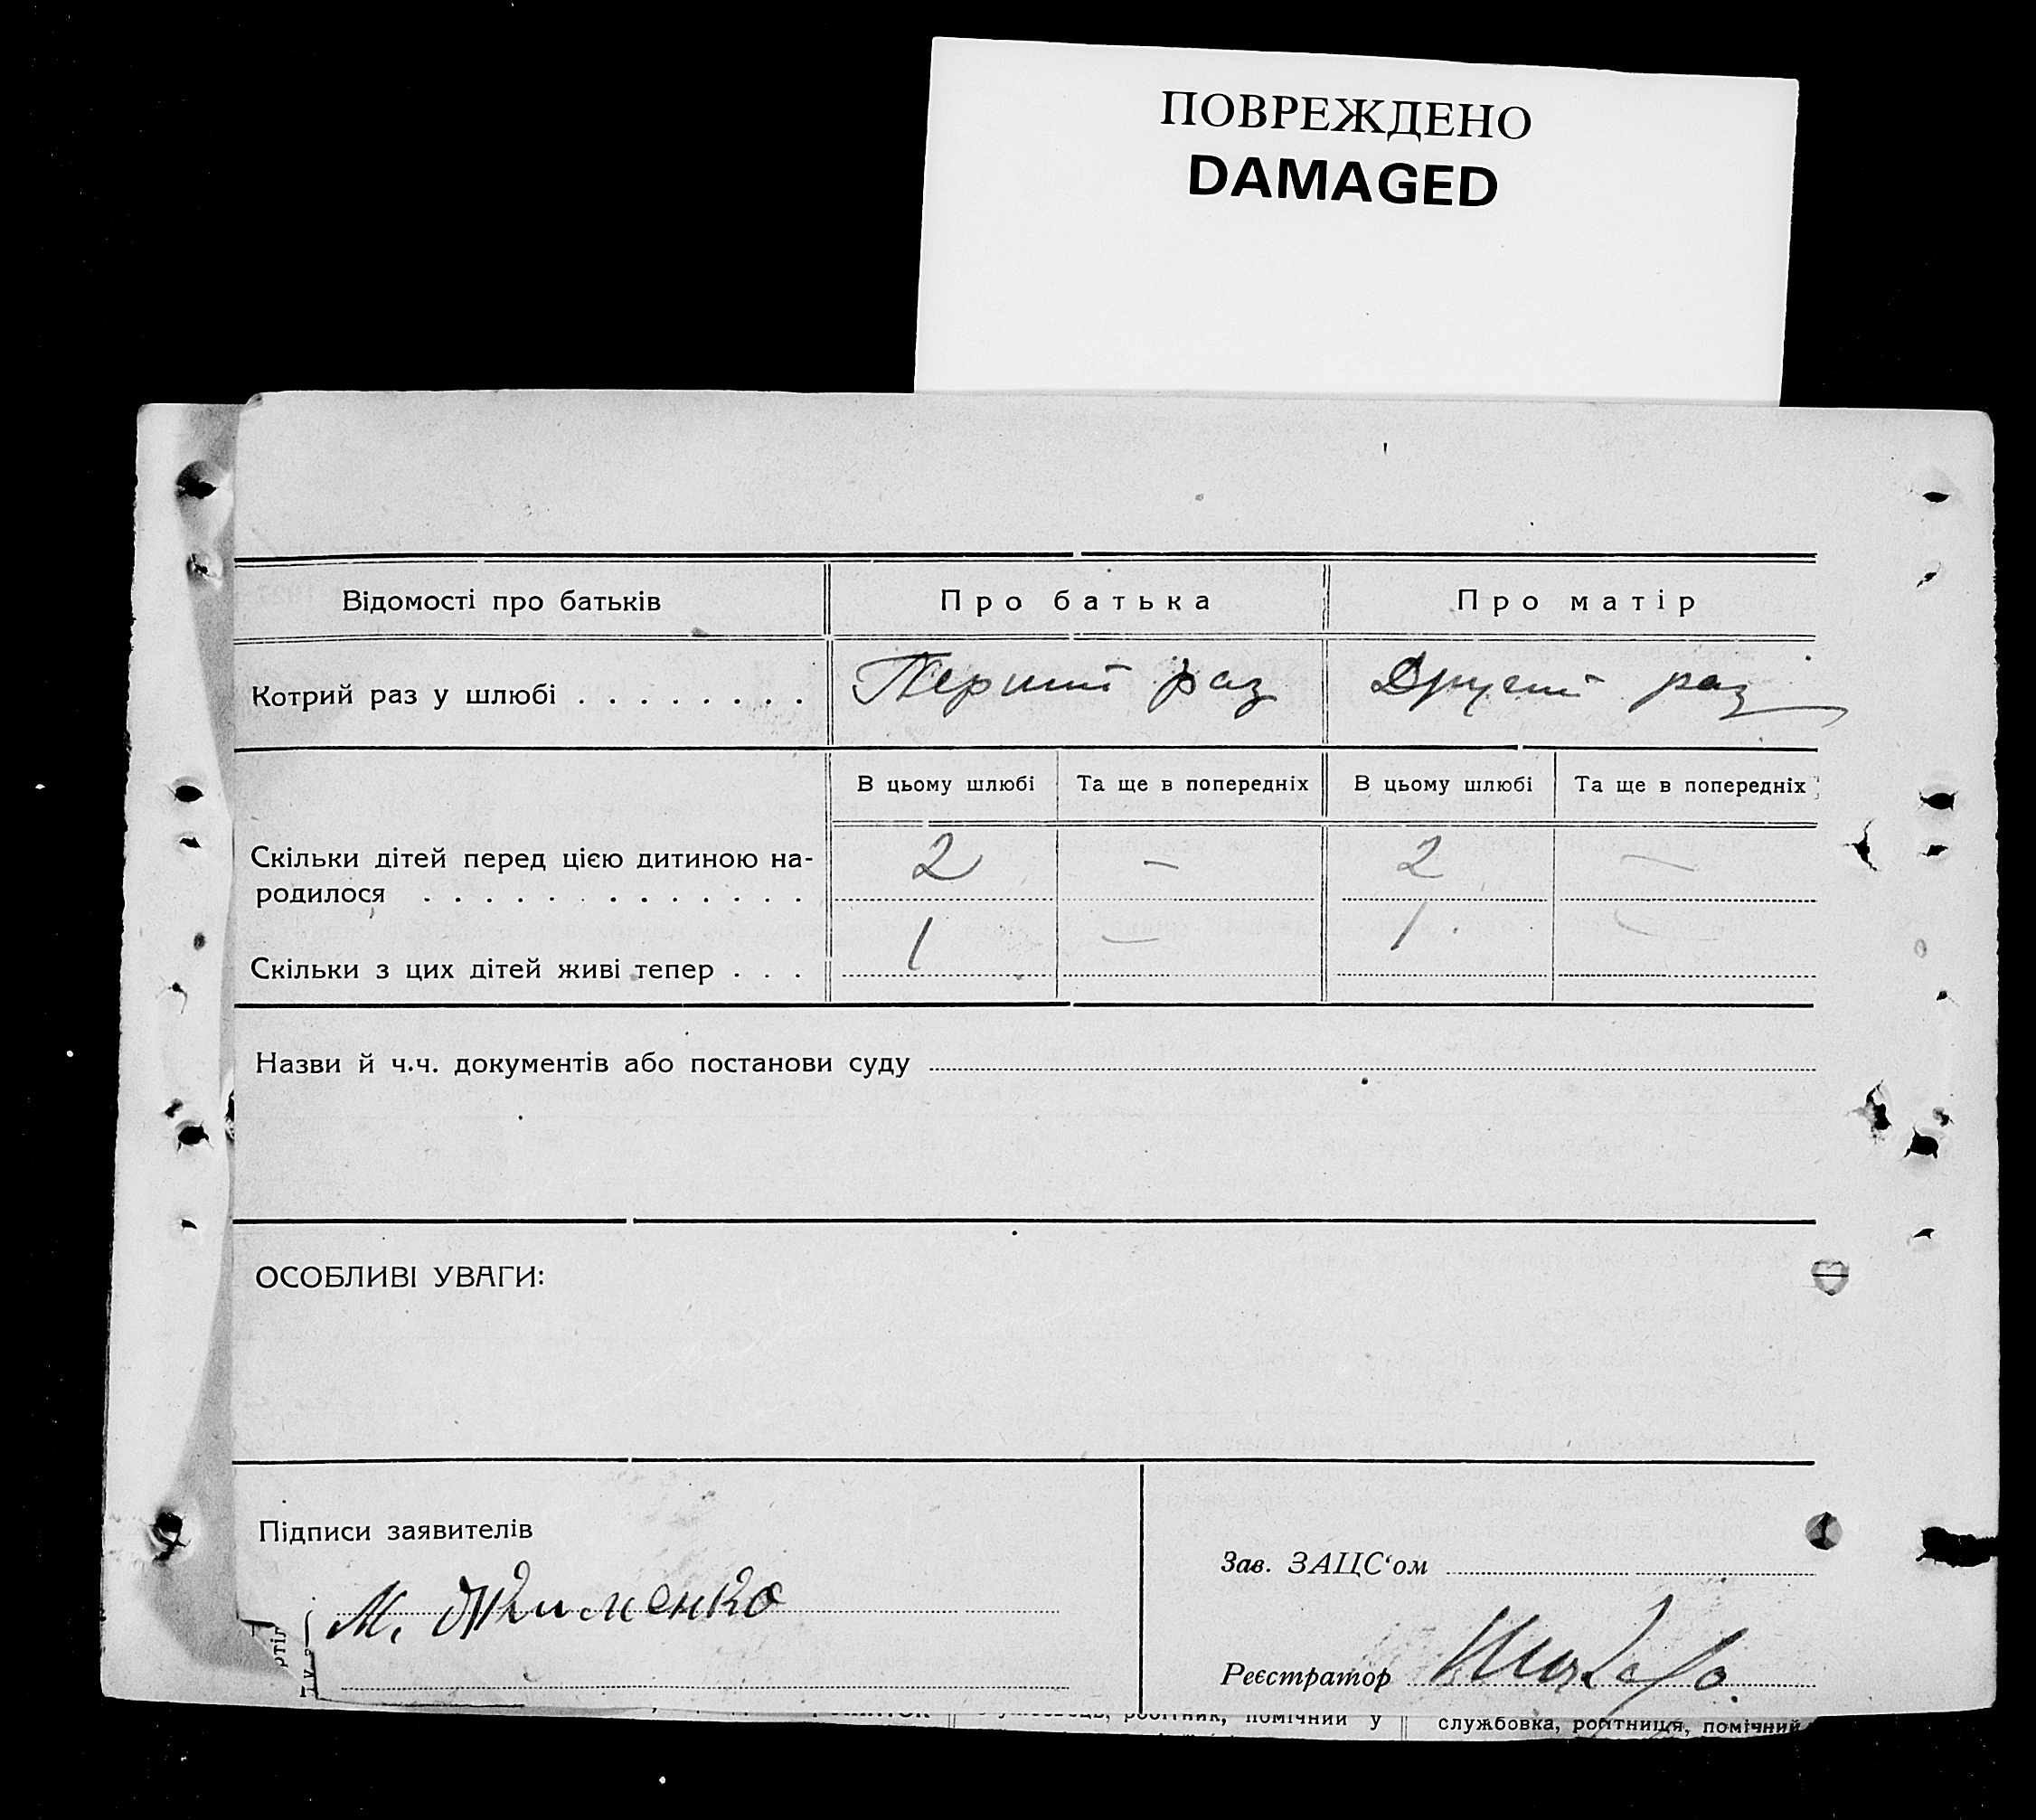 ПОВРЕЖДЕНО
DAMAGED
Відомості про батьків
Про батька
Про матір
Котрий раз у шлюбі . . . . . . . .
Перший раз
Другий раз
В цьому шлюбі
Та ще в попередніх
В цьому шлюбі
Та ще в попередніх
Скільки дітей перед цією дитиною на-
родилося . . . . . . . . . . . . .
2
—
2
—
Скільки з цих дітей живі тепер . . .
1
—
1
—
Назви й ч.ч. документів або постанови суду
ОСОБЛИВІ УВАГИ:
Підписи заявителів
М.
Зав. ЗАЦС‘ом
Реєстратор
робітник, помічний у
службовка, робітниця, помічний